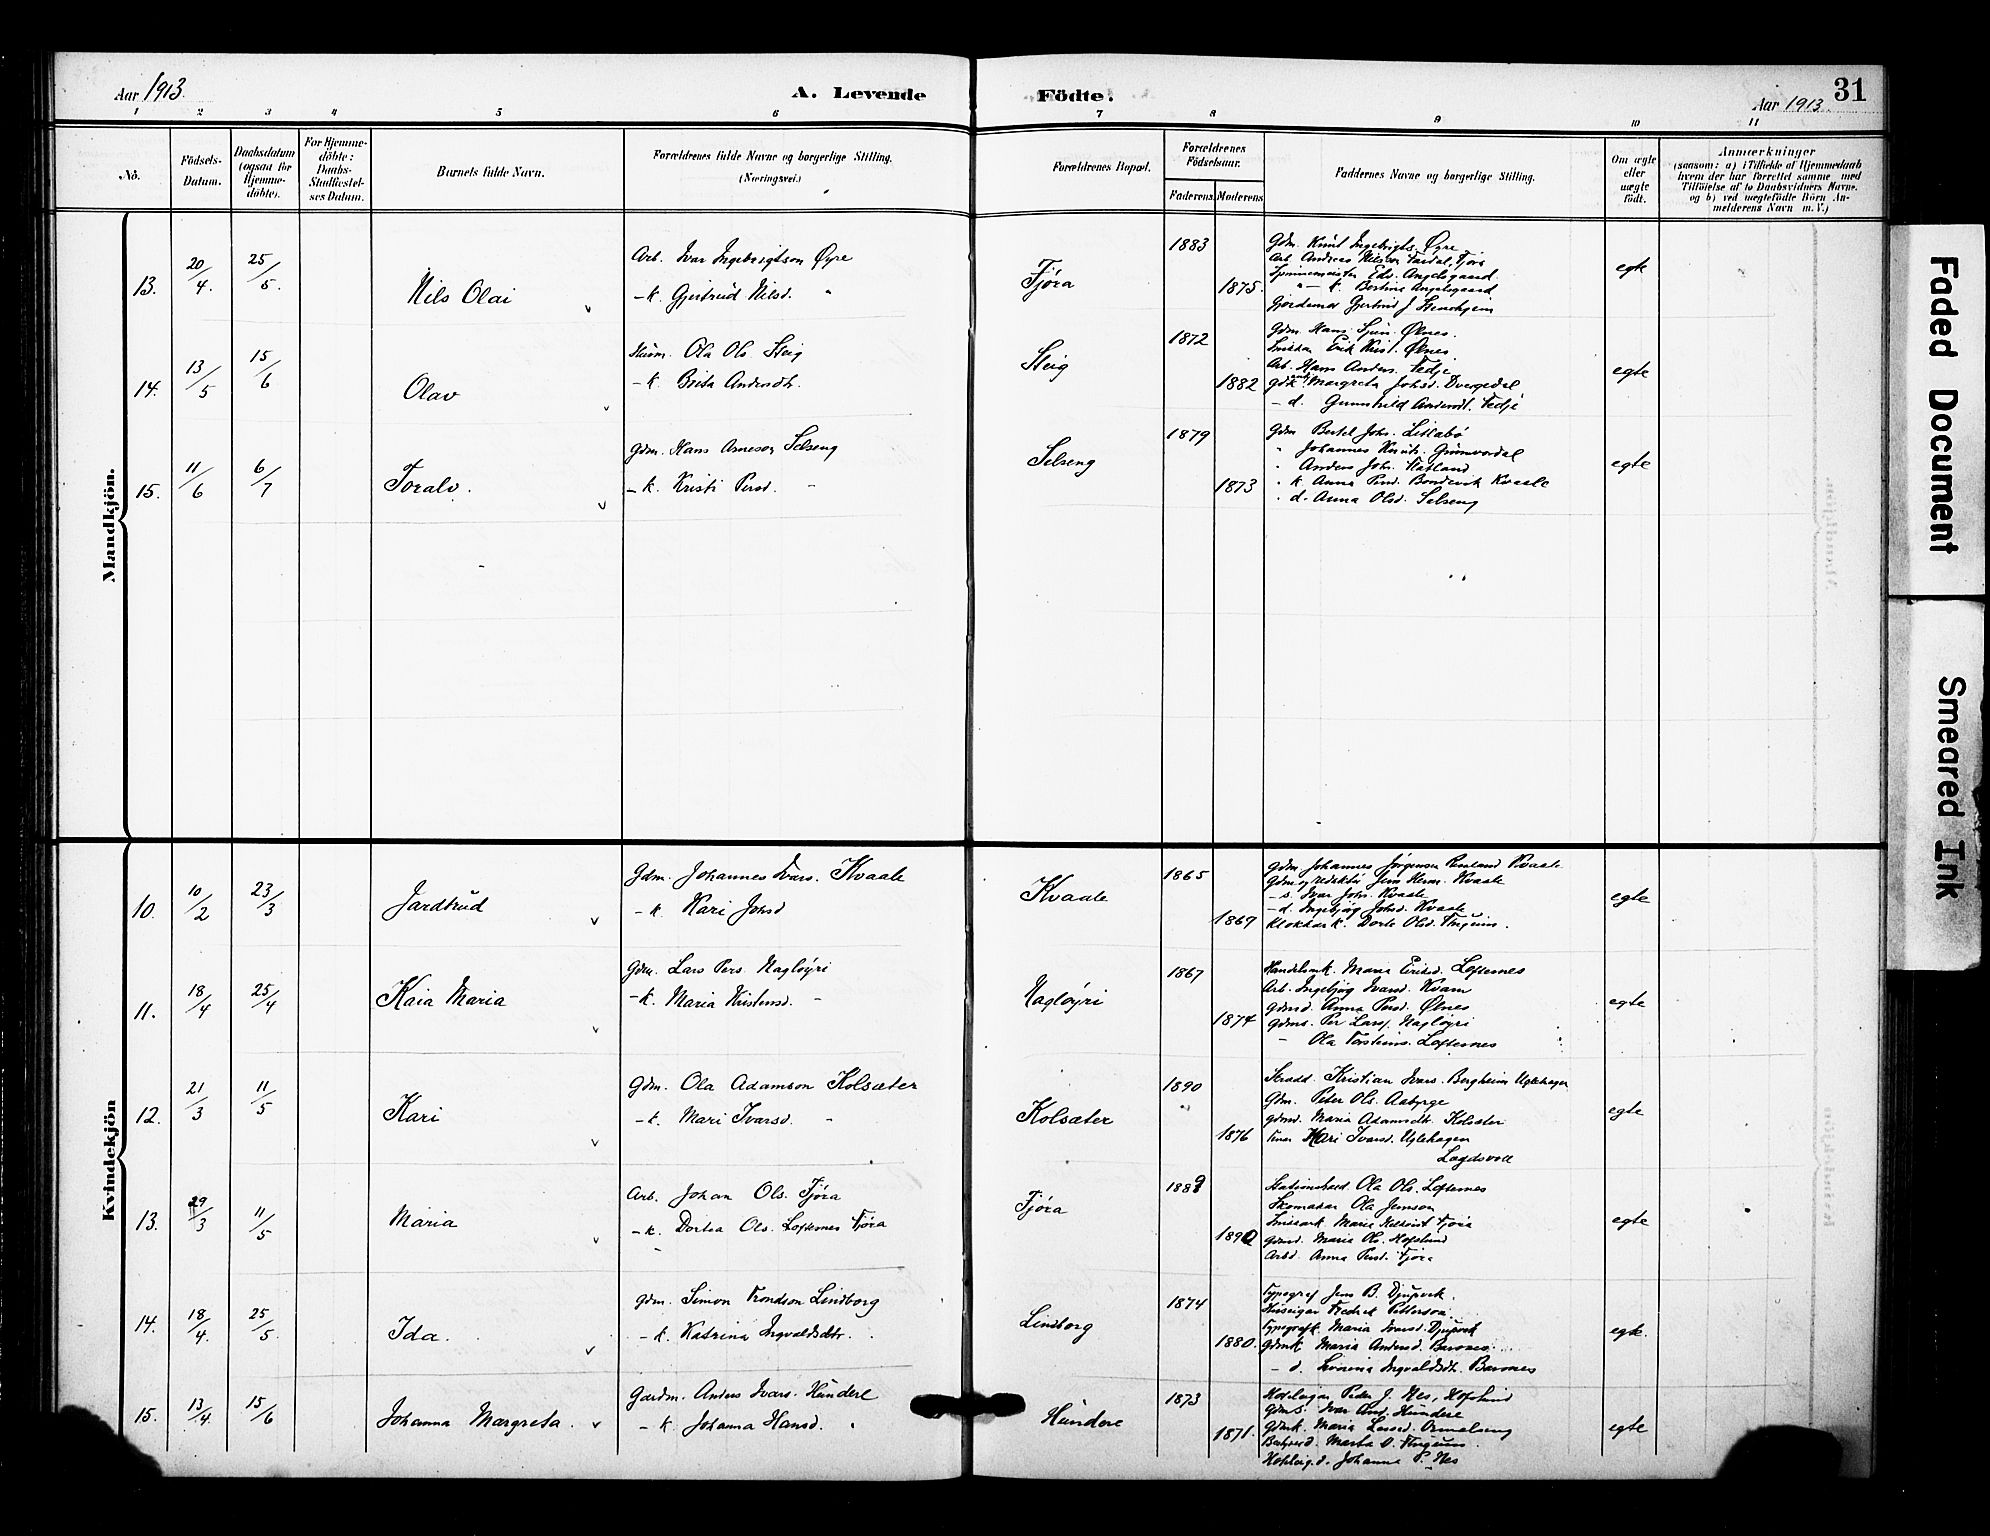 Aar 1913.
A. Levende Födte.
31
Aar 1913.
1 2 3 4 5 6 7 8 9 10 11
No.
Födsels-Datum.
Daabsdatum (ogsaa for Hjemme-döbte).
For Hjemme-döbte: Daabs-Stadfæstel-ses Datum.
Barnets fulde Navn.
Forældrenes fulde Navne og borgerlige Stilling. (Næringsvei.)
Forældrenes Bopæl.
Forældrenes Födselsaar.
Faderens Moderens
Faddernes Navne og borgerlige Stilling.
Om ægte eller uægte födt.
Anmærkninger
(saasom: a) i Tilfælde af Hjemmedaab hvem der har forrettet samme med Tilföielse af to Daabsvidners Navne. og b) ved uægtefödte Börn An-melderens Navn m. V.)
Mandkjön.
13. 20/4. 25/5. Nils Olai
Arb. Ivar Ingebrigtson Øyre
-k. Gjertrud Nilsd. "
Fjøra
1883
1875.
Gdm. Knut Ingebrigts. Øyre
Arb. Andreas Nilsen Fardal, Fjøra
Spinnemeister Edv. Angelsgaard
" - k. Bertine Angelsgaard
Gjordemor Gjertrud J
egte
14. 13/5 15/6 Olav
Husm. Ola Ols. Steig
-k. Brita Andersdt.
Steig
1872
1882
Gdm. Hans Sjurs. Ølnes.
Erik Krist. Ølnes.
Arb. Hans Anders. Fedje
Margreta Johsd. Dvergedal
- d. Gunnhild Andersdt. Fedje
egte
15. 11/6 6/7 Toralv.
Gdm. Hans Arneson Selseng
-k. Kristi Persd. "
Selseng
1879
1873
Gdm Bertel Johs. Litlabø
" Johannes Knuts. Grimvordal
" Anders Joh. Flatland
" k. Anna Persd. Bondevik Kvaale
" d. Anna Olsd. Selseng
egte
Kvindekjön
10. 10/2 23/3 Jardtrud
Gdm. Johannes Ivars. Kvaale
-k. Kari Johsd
Kvaale
1865
1869
Gdm Johannes Jørgensen Kvaale
Gdm og redaktør Jens Herm. Kvaale
- s. Ivar Johs. Kvaale
- d. Ingebjørg Johsd. Kvaale
Klokkark. Dorte Olsd.
egte
11. 18/4 25/4 Kaia Maria
Gdm. Lars Pers. Nagløyri
-k. Maria Kristensd. "
Nagløyri
1867
1874
Handelsmk. Maria Eriksd. Loftesnes
Arb. Ingebjørg Ivarsd. Kvam
Gdmsd. Anna Persd. Ølnes
Gdms. Per Larss. Nagløyri
" Ola Torsteins. Loftesnes
egte
12. 21/3 11/5 Kari
Gdm. Ola Adamson Kolsæter
-k. Mari Ivarsd. "
Kolsæter
1890
1876
Skradd. Kristian Ivars. Bergheim Uglehagen
Gdm. Peter Ols. Aabyrge
Gdmd. Maria Adamsdt. Kolsæter
Kari Ivarsd. Uglehagen
Lægdsvoll
egte
13. 29/3 11/5 Maria
Arb. Johan Ols. Fjøra
-k. Dortea Ols. Loftesnes Fjøra
Fjøra
1889
1890
Ola Ols. Loftesnes
Skomakar Ola Jenson
Maria Fjøra
Gdmsd. Maria Ols. Hofslund
Arbd. Anna Persd. Fjøra
egte
14. 18/4. 25/5. Ida.
Gdm. Simon Trondson Lindborg
-k. Katrina Ingvaldsdtr.
Lindborg
1874
1880.
Typograf Jens B. Djupvik.
Huseigar Fredrik Petterson
Typografk. Maria Ivarsd. Djupvik
Gdmk. Maria Andersd. Barsnes
- d. Severina Ingvaldsdt. Barsnes
egte.
15. 13/4. 15/6 Johanna Margreta.
Gardm. Anders Ivars. Hundere
-k. Johanna Hansd. "
Hundere
1873
1871.
Hoteleigar Peder J. Nes, Hofslund
Gdms. Ivar And. Hundere
Gdmk. Maria Larsd. Ormelseng
Marta O.
Hoteleig.d. Johanna P. Nes
egte
Faded Document
Smeared Ink